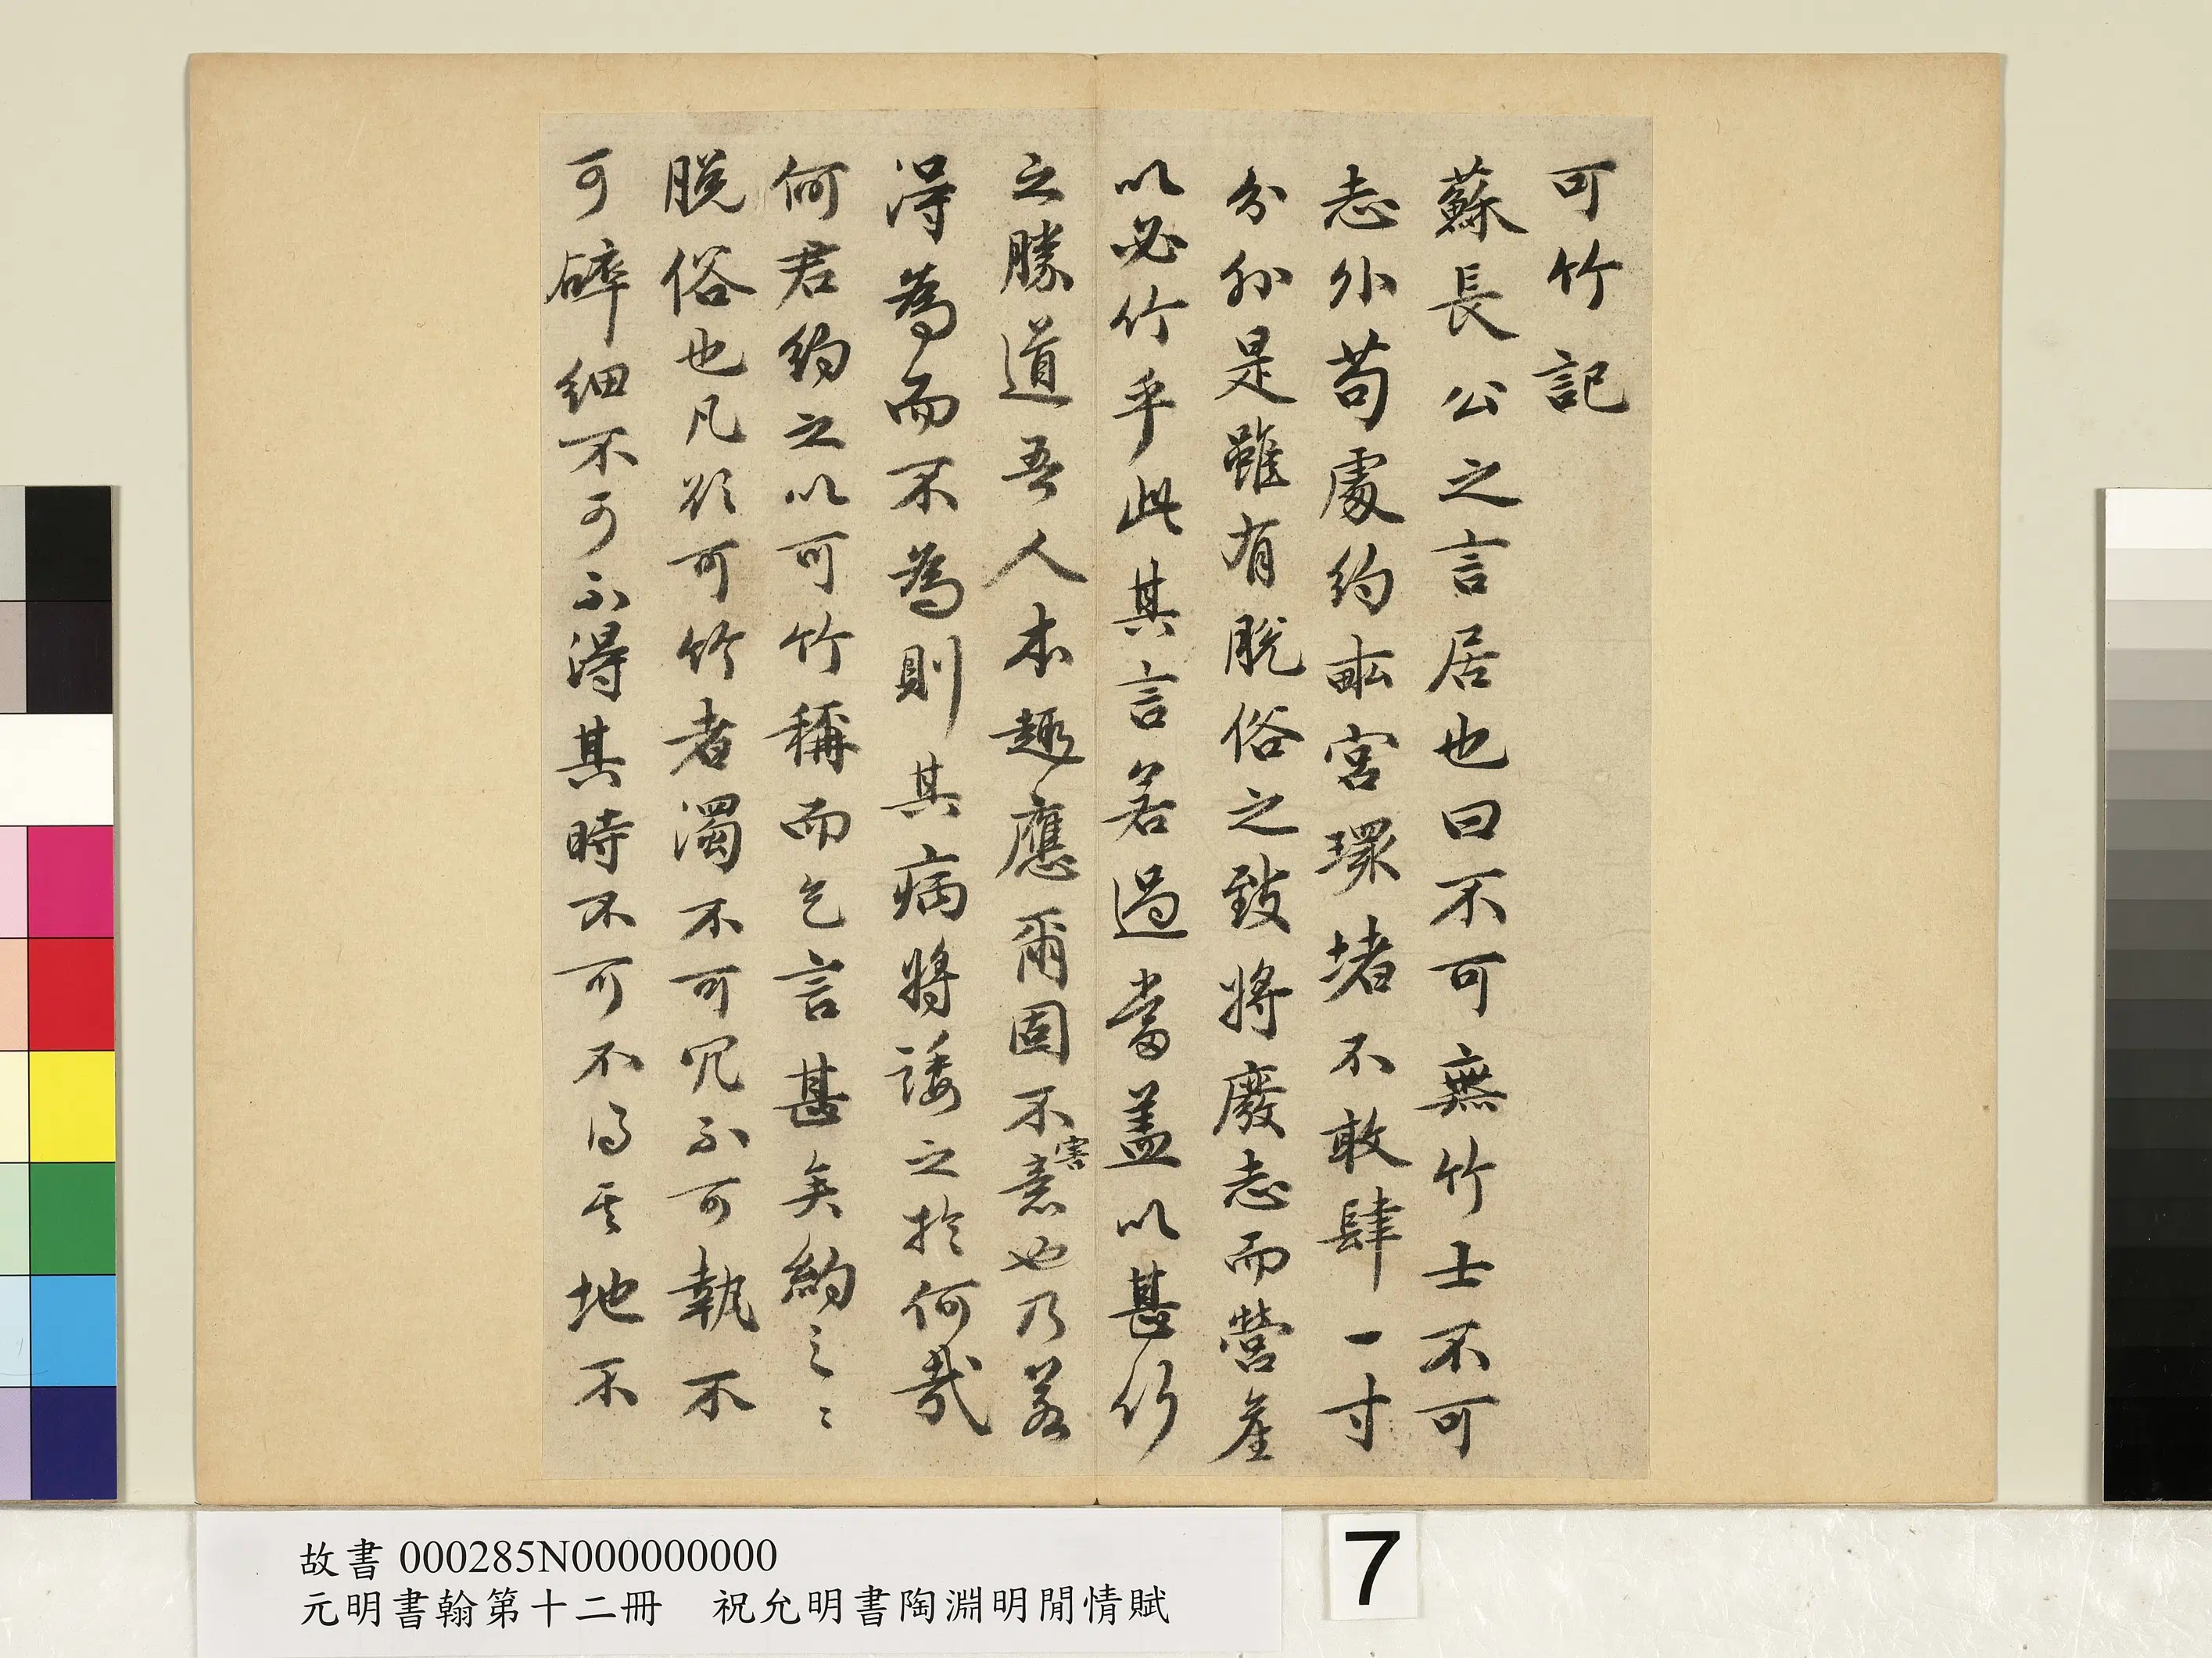 可竹記
蘇長公之言居也曰不可無竹士不可
志外苟處約畝宮環堵不敢肆一寸
分外是雖有脫俗之致將廢志而營產
以必竹乎此其言若過當蓋以甚竹
之勝道吾人本趣應爾固不害意也乃若
得為而不為則其病將諉之於何哉
何君約之以可竹稱而乞言甚矣約之〻
脫俗也凡欲可竹者濁不可冗不可執不
可碎細不可不得其時不可不得其地不
故書 000285N000000000
元明書翰第十二冊　祝允明書陶淵明閒情賦
7